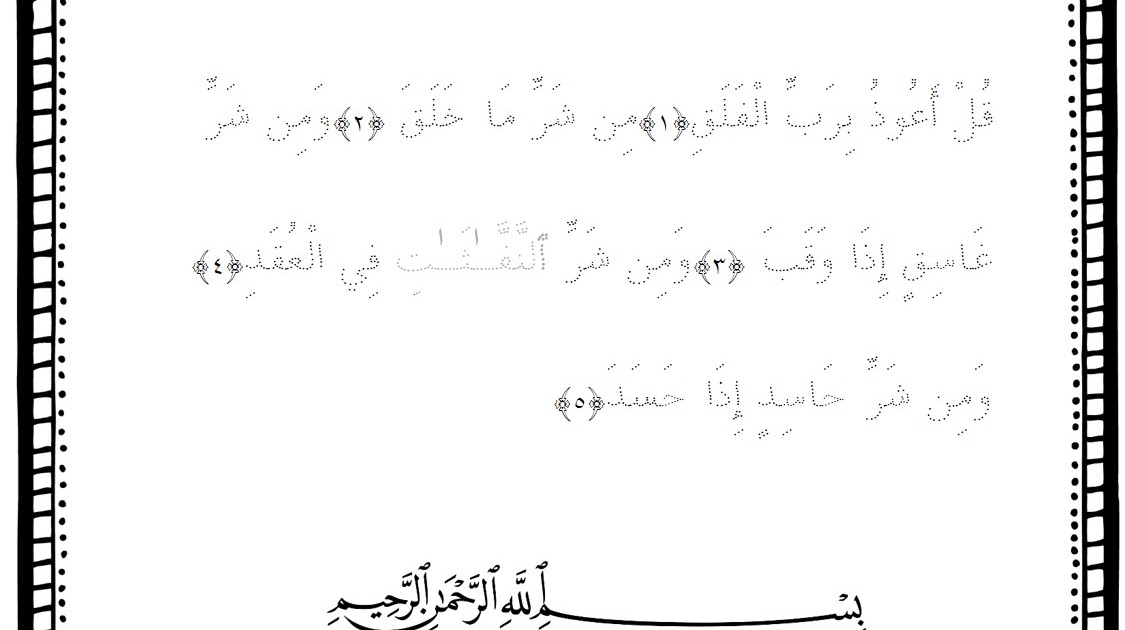 قُلْ أَعُوذُ بِرَبِّ الْفَلَقِ﴿١﴾مِن شَرِّ مَا خَلَقَ ﴿٢﴾وَمِن شَرِّ
غَاسِقٍ إِذَا وَقَبَ ﴿٣﴾وَمِن شَرِّ ٱلنَّفَّـٰثَـٰتِ فِي الْعُقَدِ﴿٤﴾
وَمِن شَرِّ حَاسِدٍ إِذَا حَسَدَ﴿٥﴾
بِسْمِ ٱللَّهِ ٱلرَّحْمَٰنِ ٱلرَّحِيمِ